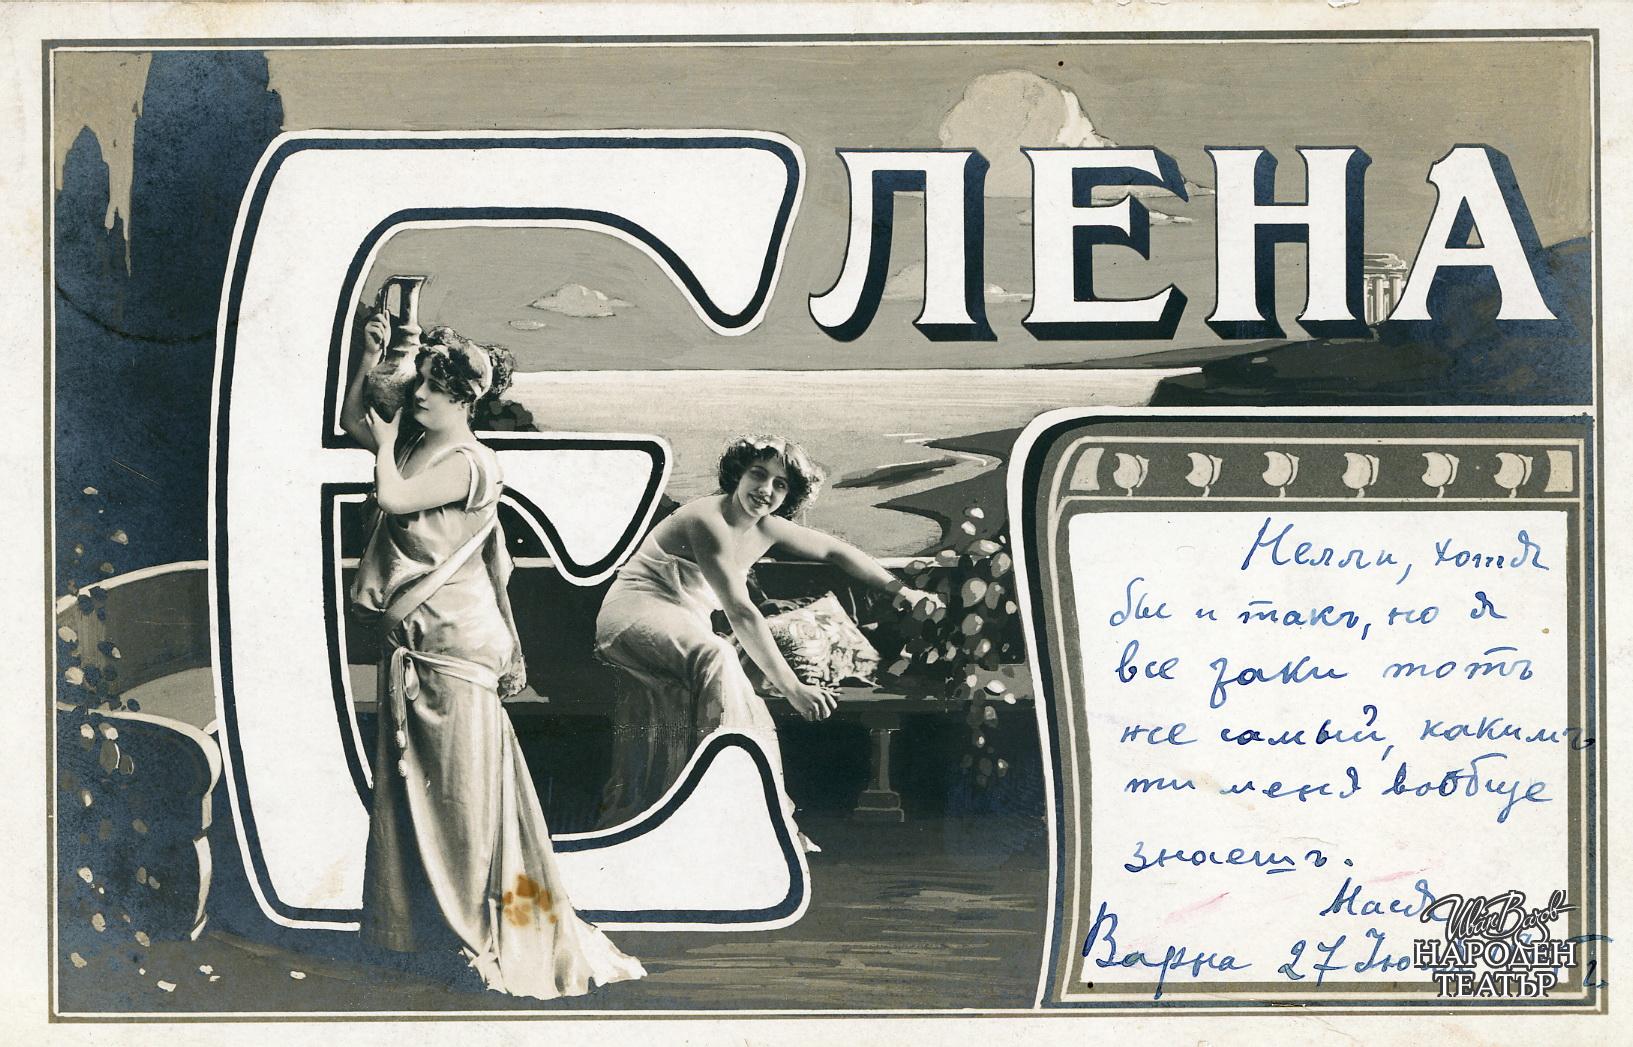 ЕЛЕНА
Нелли, хотя
бы и такъ, но я
все заки тотъ
же самый, какимъ
ти меня вообще
знаешъ.
Варна 27
Иван Вазов
НАРОДЕН
ТЕАТЪР